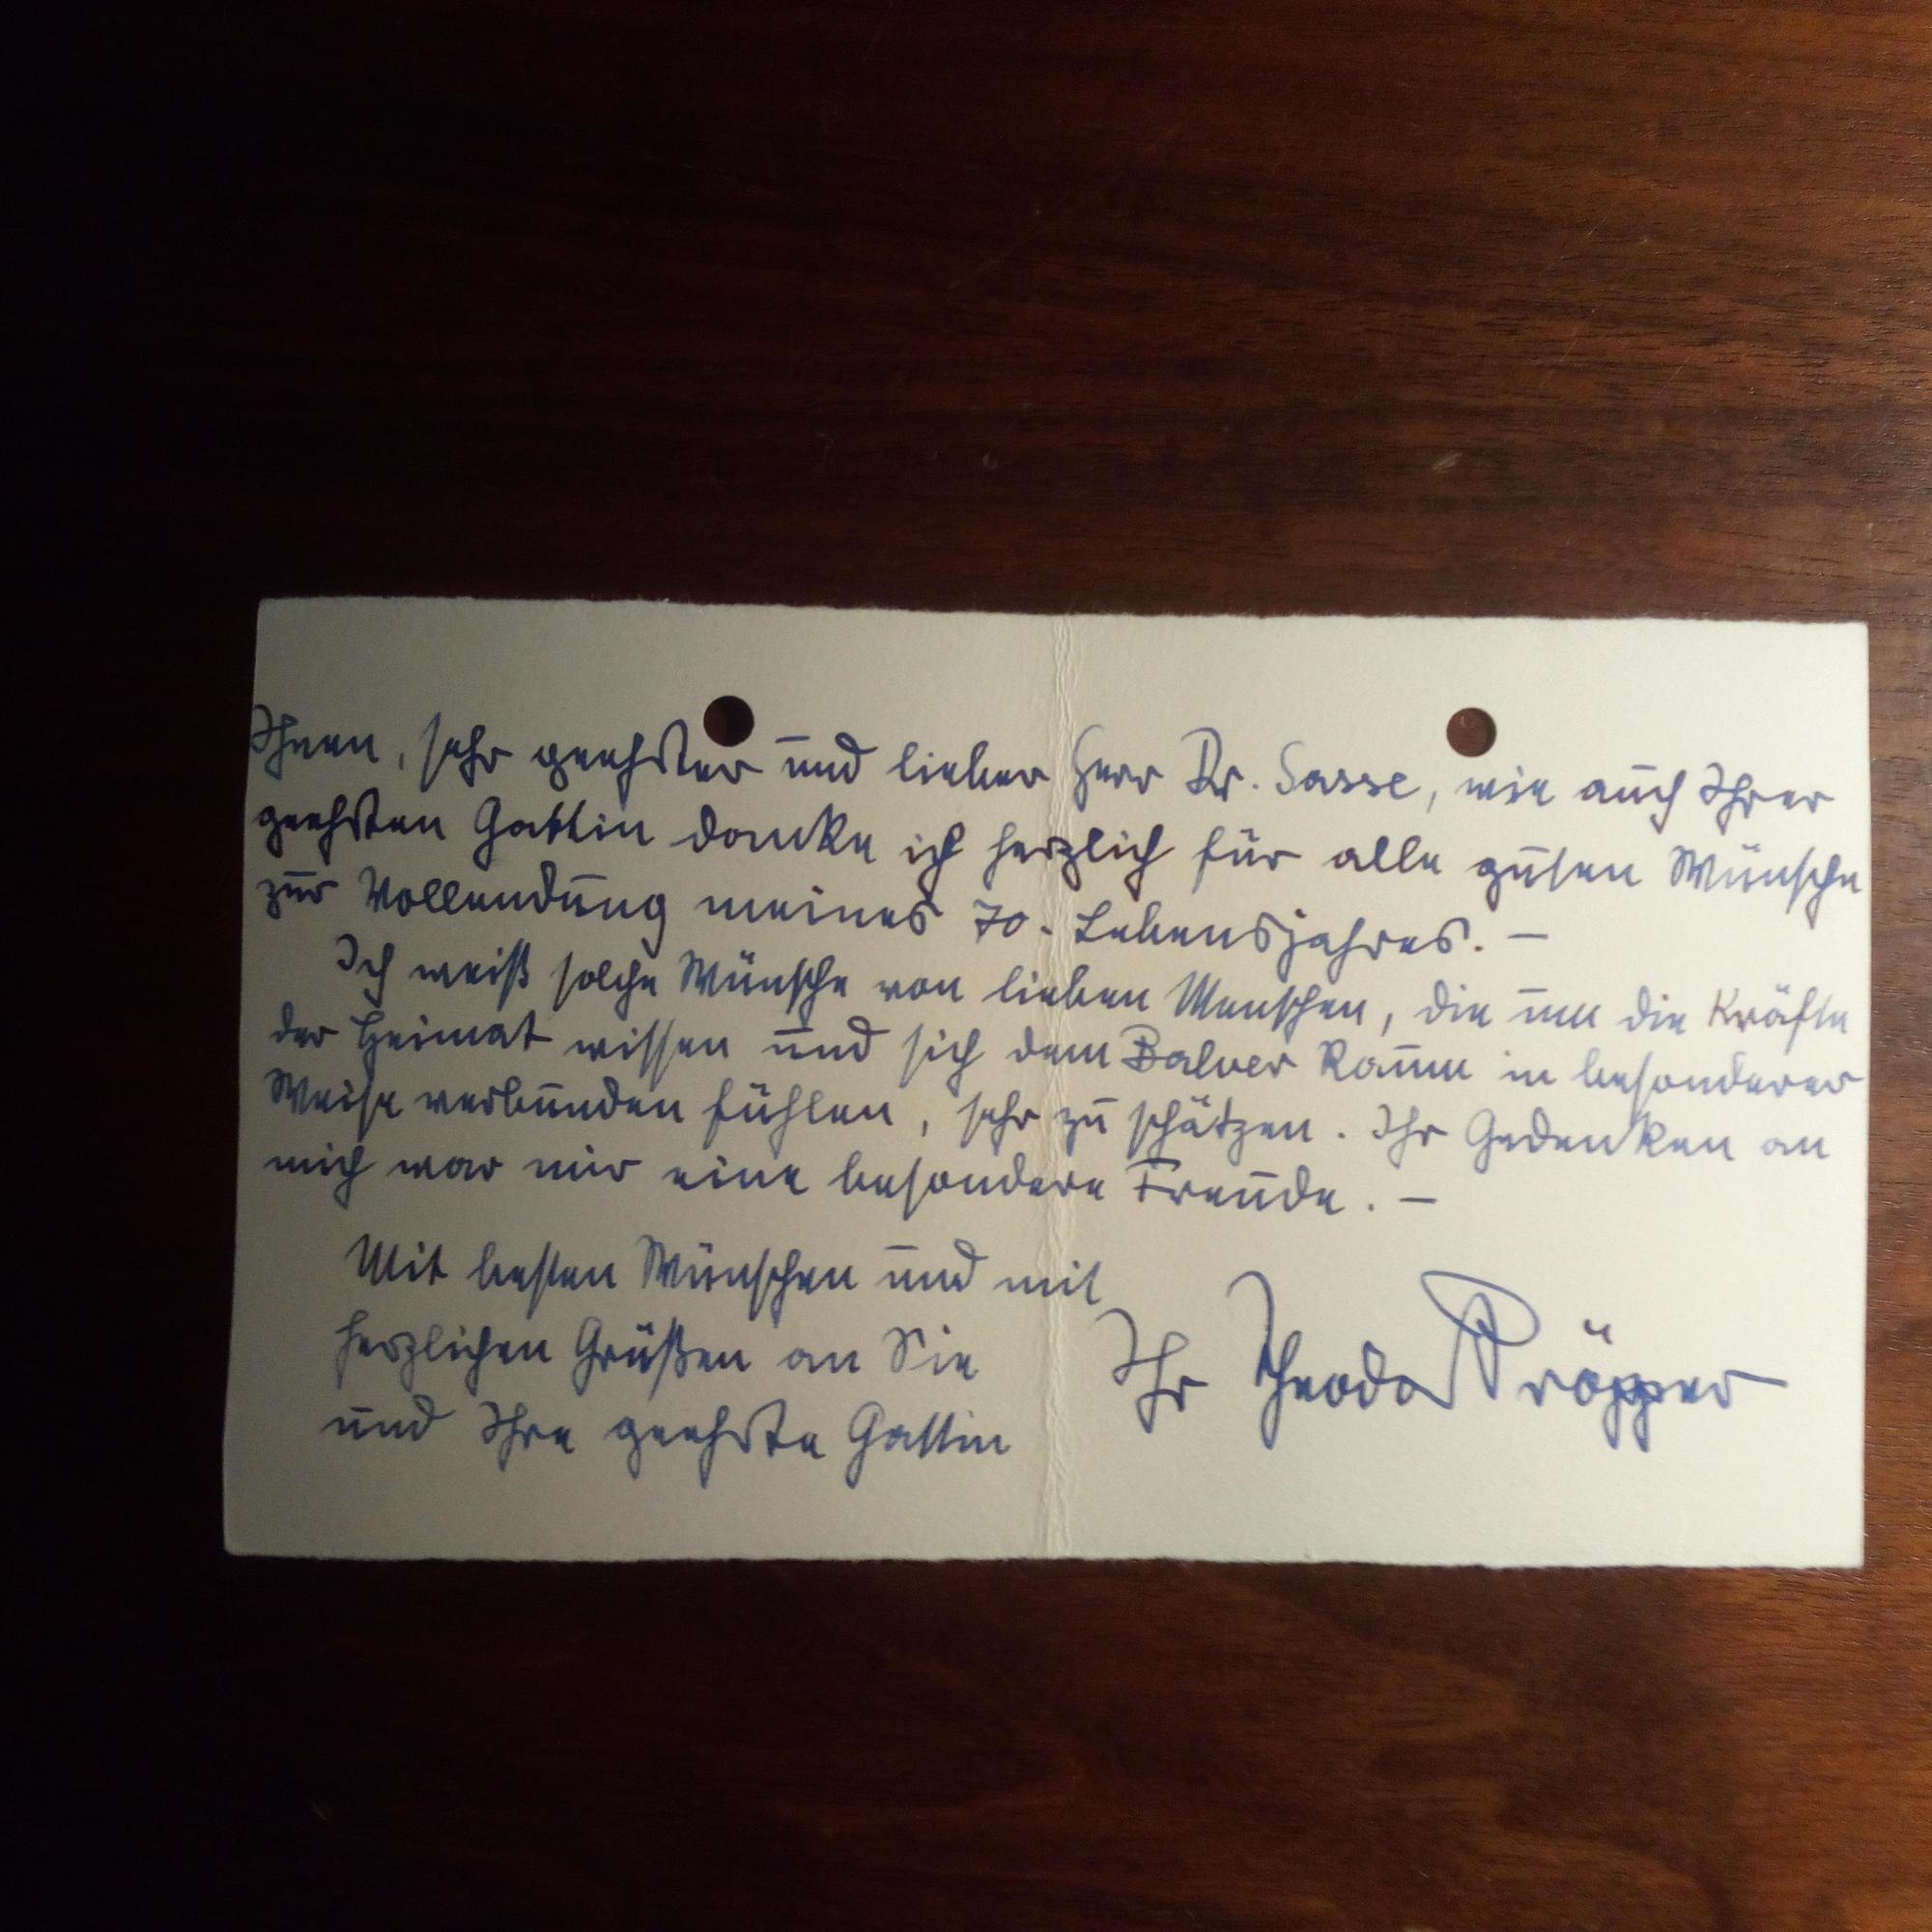 Ihnen, sehr geehrter und lieber Herr Dr. Sasse, wie auch Ihrer
geehrten Gattin danke ich herzlich für alle guten Wünsche
zur Vollendung meines 70. Lebensjahres. –
Ich weiß solche Wünsche von lieben Menschen, die um die Kräfte
der Heimat wissen und sich dem Balver Raum in besonderer
Weise verbunden fühlen, sehr zu schätzen. Ihr Gedenken an
mich war mir eine besondere Freude. –
Mit besten Wünschen und mit
herzlichen Grüßen an Sie
und Ihre geehrte Gattin
Ihr Theodor Pröpper